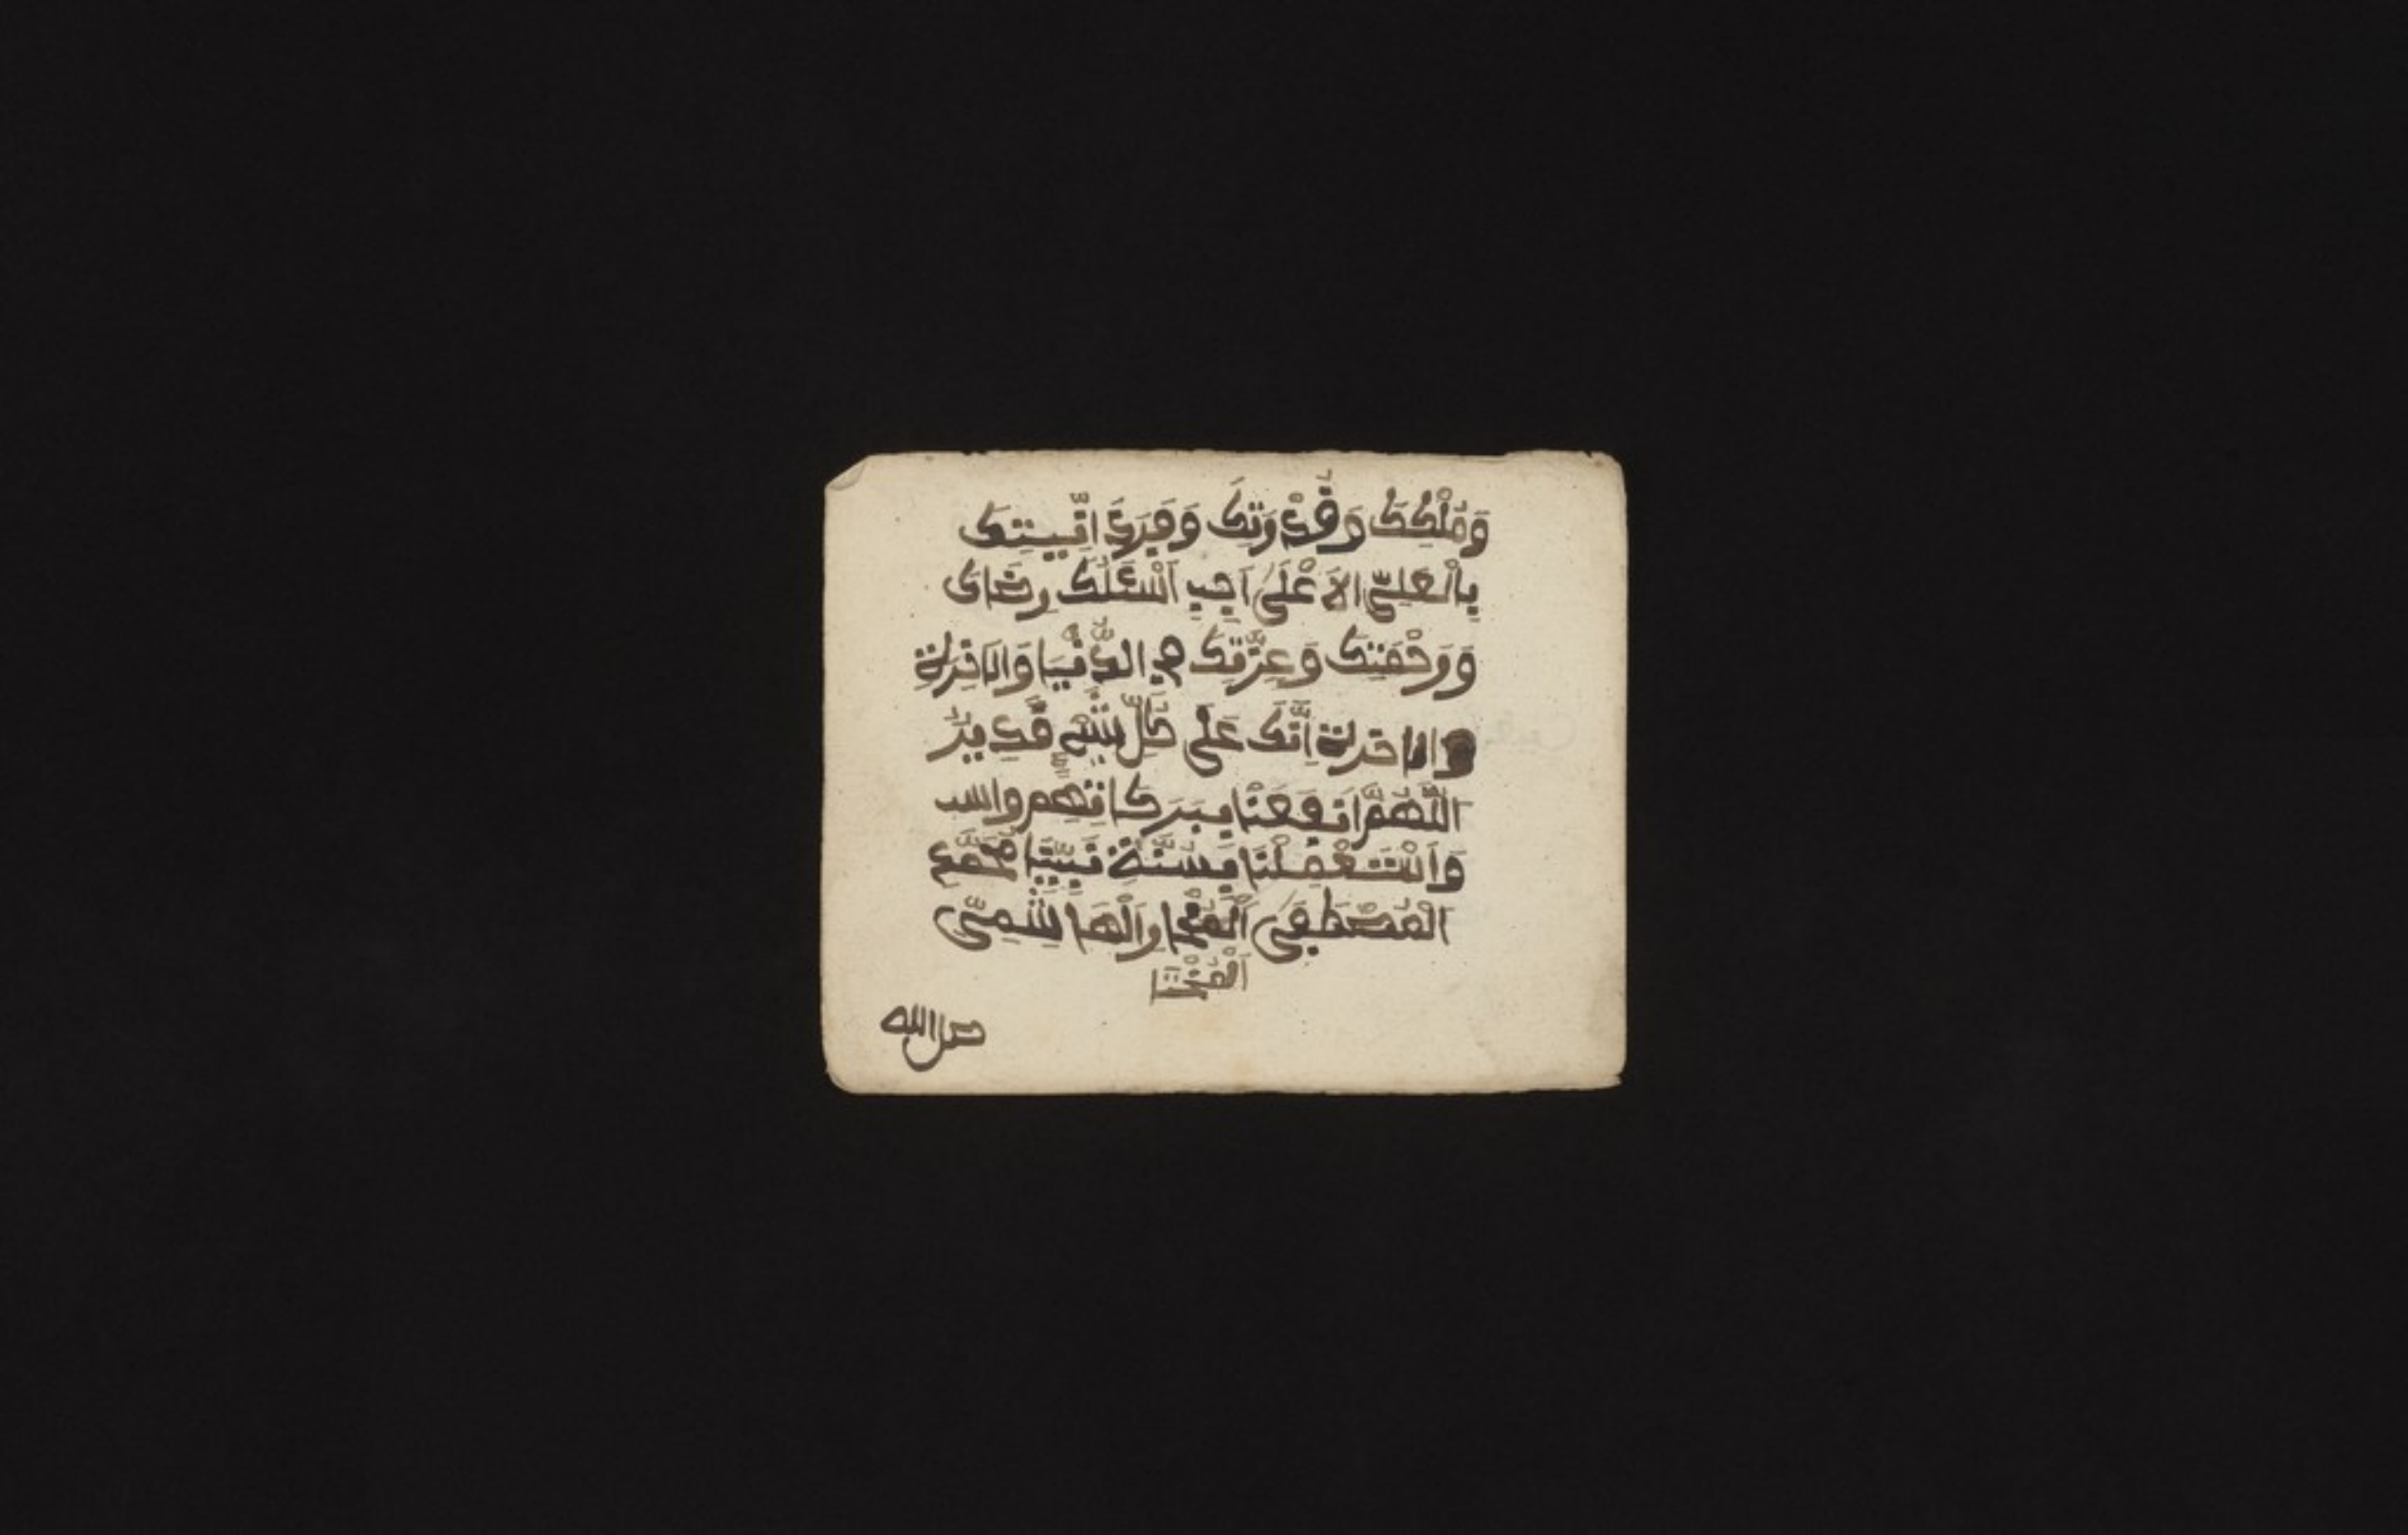 وَمُلْكِكَ وَقُدْوَرَتِكَ وَفَرَدَ انِّيـيتِكَ
بِالْعَلِيِّ الاَعْلَىٰ اَجِبِ اَسْئَلُكَ رِضَاكَ
وَرَحْمَتِكَ وَعِزَّتِكَ فِي الدُّنْيَا وَالاَخِرَةِ
وَالاَخرة اِنَّكَ عَلَى كُلِّ شَيْءٍ قَدِيرٌ
اللَّهُمَّ انْفَعْنَا بِبَرَكَاتِهِمْ واس
وَاسْتَعْمِلْنَا بِسُنَّةِ نَبِيِّنَا مُحَمَّدٍ
الْمُصْطَفَى الْمُخْتَارِ الْهَاشِمِيِّ
صل الله